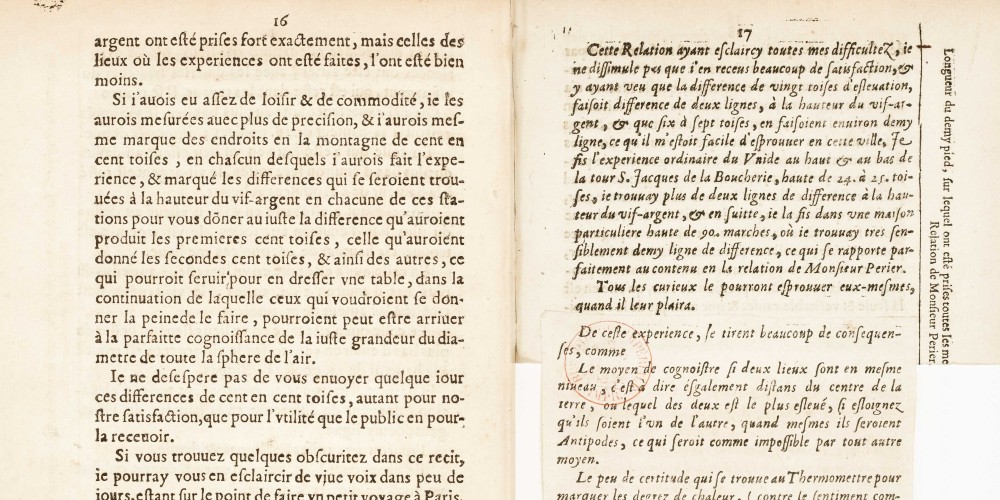 16
argent ont esté prises fort exactement, mais celles des
lieux où les experiences ont esté faites, l'ont esté bien
moins.
Si i'auois eu assez de loisir & de commodité, ie les
aurois mesurées auec plus de precision, & i'aurois mes-
me marque des endroits en la montagne de cent en
cent toises, en chascun desquels i'aurois fait l'expe-
rience, & marqué les differences qui se seroient trou-
uées à la hauteur du vif-argent en chacune de ces sta-
tions pour vous dōner au iuste la difference qu'auroient
produit les premieres cent toises, celle qu'auroient
donné les secondes cent toises, & ainsi des autres, ce
qui pourroit seruir pour en dresser vne table, dans la
continuation de laquelle ceux qui voudroient se don-
ner la peinede le faire, pourroient peut estre arriuer
à la parfaitte cognoissance de la iuste grandeur du dia-
metre de toute la sphere de l'air.
Ie ne desespere pas de vous enuoyer quelque iour
ces differences de cent en cent toises, autant pour no-
stre satisfaction, que pour l'vtilité que le public en pour-
la receuoir.
Si vous trouuez quelques obscuritez dans ce recit,
ie pourray vous en esclaircir de viue voix dans peu de
iours, estant sur le point de faire vn petit voyage à Paris,
17
Cette Relation ayant esclaircy toutes mes difficultez, ie
ne dissimule pas que i'en receus beaucoup de satisfaction, &
y ayant veu que la difference de vingt toises d'esleuation,
faisoit difference de deux lignes, à la hauteur du vif-ar-
gent, & que six à sept toises, en faisoient enuiron demy
ligne, ce qu'il m'estoit facile d'esprouuer en cette ville, Je
fis l'experience ordinaire du Vuide au haut & au bas de
la tour S. Jacques de la Boucherie, haute de 24. à 25. toi-
ses, ie trouuay plus de deux lignes de difference à la hau-
teur du vif-argent, & en suitte, ie la fis dans vne maison
particuliere haute de 90. marches, où ie trouuay tres sen-
siblement demy ligne de difference, ce qui se rapporte par-
faitement au contenu en la relation de Monsieur Perier.
Tous les curieux le pourront esprouuer eux-mesmes,
quand il leur plaira.
De ceste experience, se tirent beaucoup de consequen-
ses, comme
Le moyen de cognoistre si deux lieux sont en mesme
niueau, c'est à dire esgalement distans du centre de la
terre, ou lequel des deux est le plus esleué, si esloignez
qu'ils soient l'vn de l'autre, quand mesmes ils seroient
Antipodes, ce qui seroit comme impossible par tout autre
moyen.
Le peu de certitude qui se trouue au Thermometre pour
marquer les degrez de chaleur, (contre le sentiment com-
Longueur du demy pied, sur lequel ont esté prises toutes les me
Relation de Monsieur Perier.